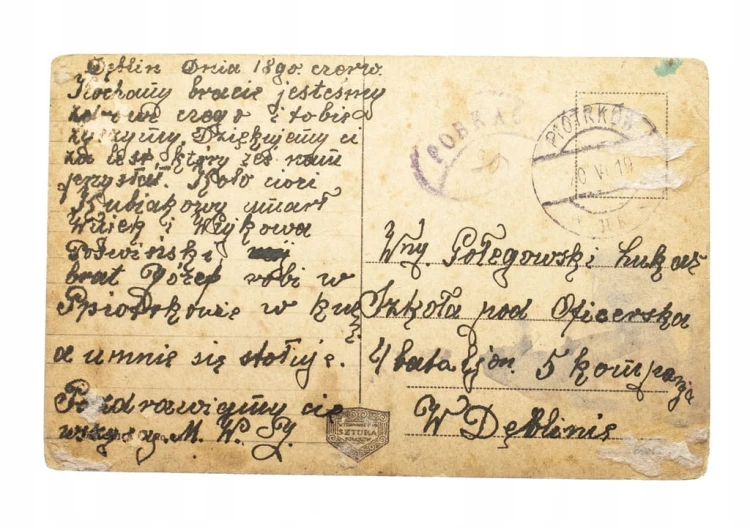 Dęblin Dnia 18go. czerw.
Kochany bracie jesteśmy
zdrowe czego i tobie
życzymy. Dziękujemy ci
za list który żeś nam
przysłał. Koło cioci
Kubiakowy umarł
Wujek i Wujkowa
brat Józef robi w
Ppiotrkowie w
a umnie się stołuje.
Pozdrawiamy cię
wszyscy. M. W. J.
SZTUKA
KRAKÓW
PIOTRKÓW
Wny. Połegowski Łukasz
Szkoła pod Oficerska
4 bataljon. 5 kompanja
W Dęblinie